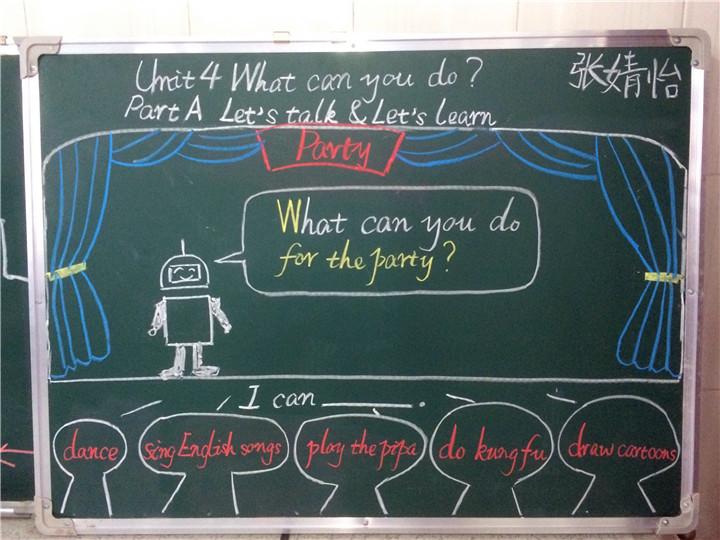 Unit 4 What can you do?
张婧怡
Part A Let's talk & Let's learn
Party
What can you do
for the party?
I can ________.
dance
sing English songs
play the pipa
do kung fu
draw cartoons